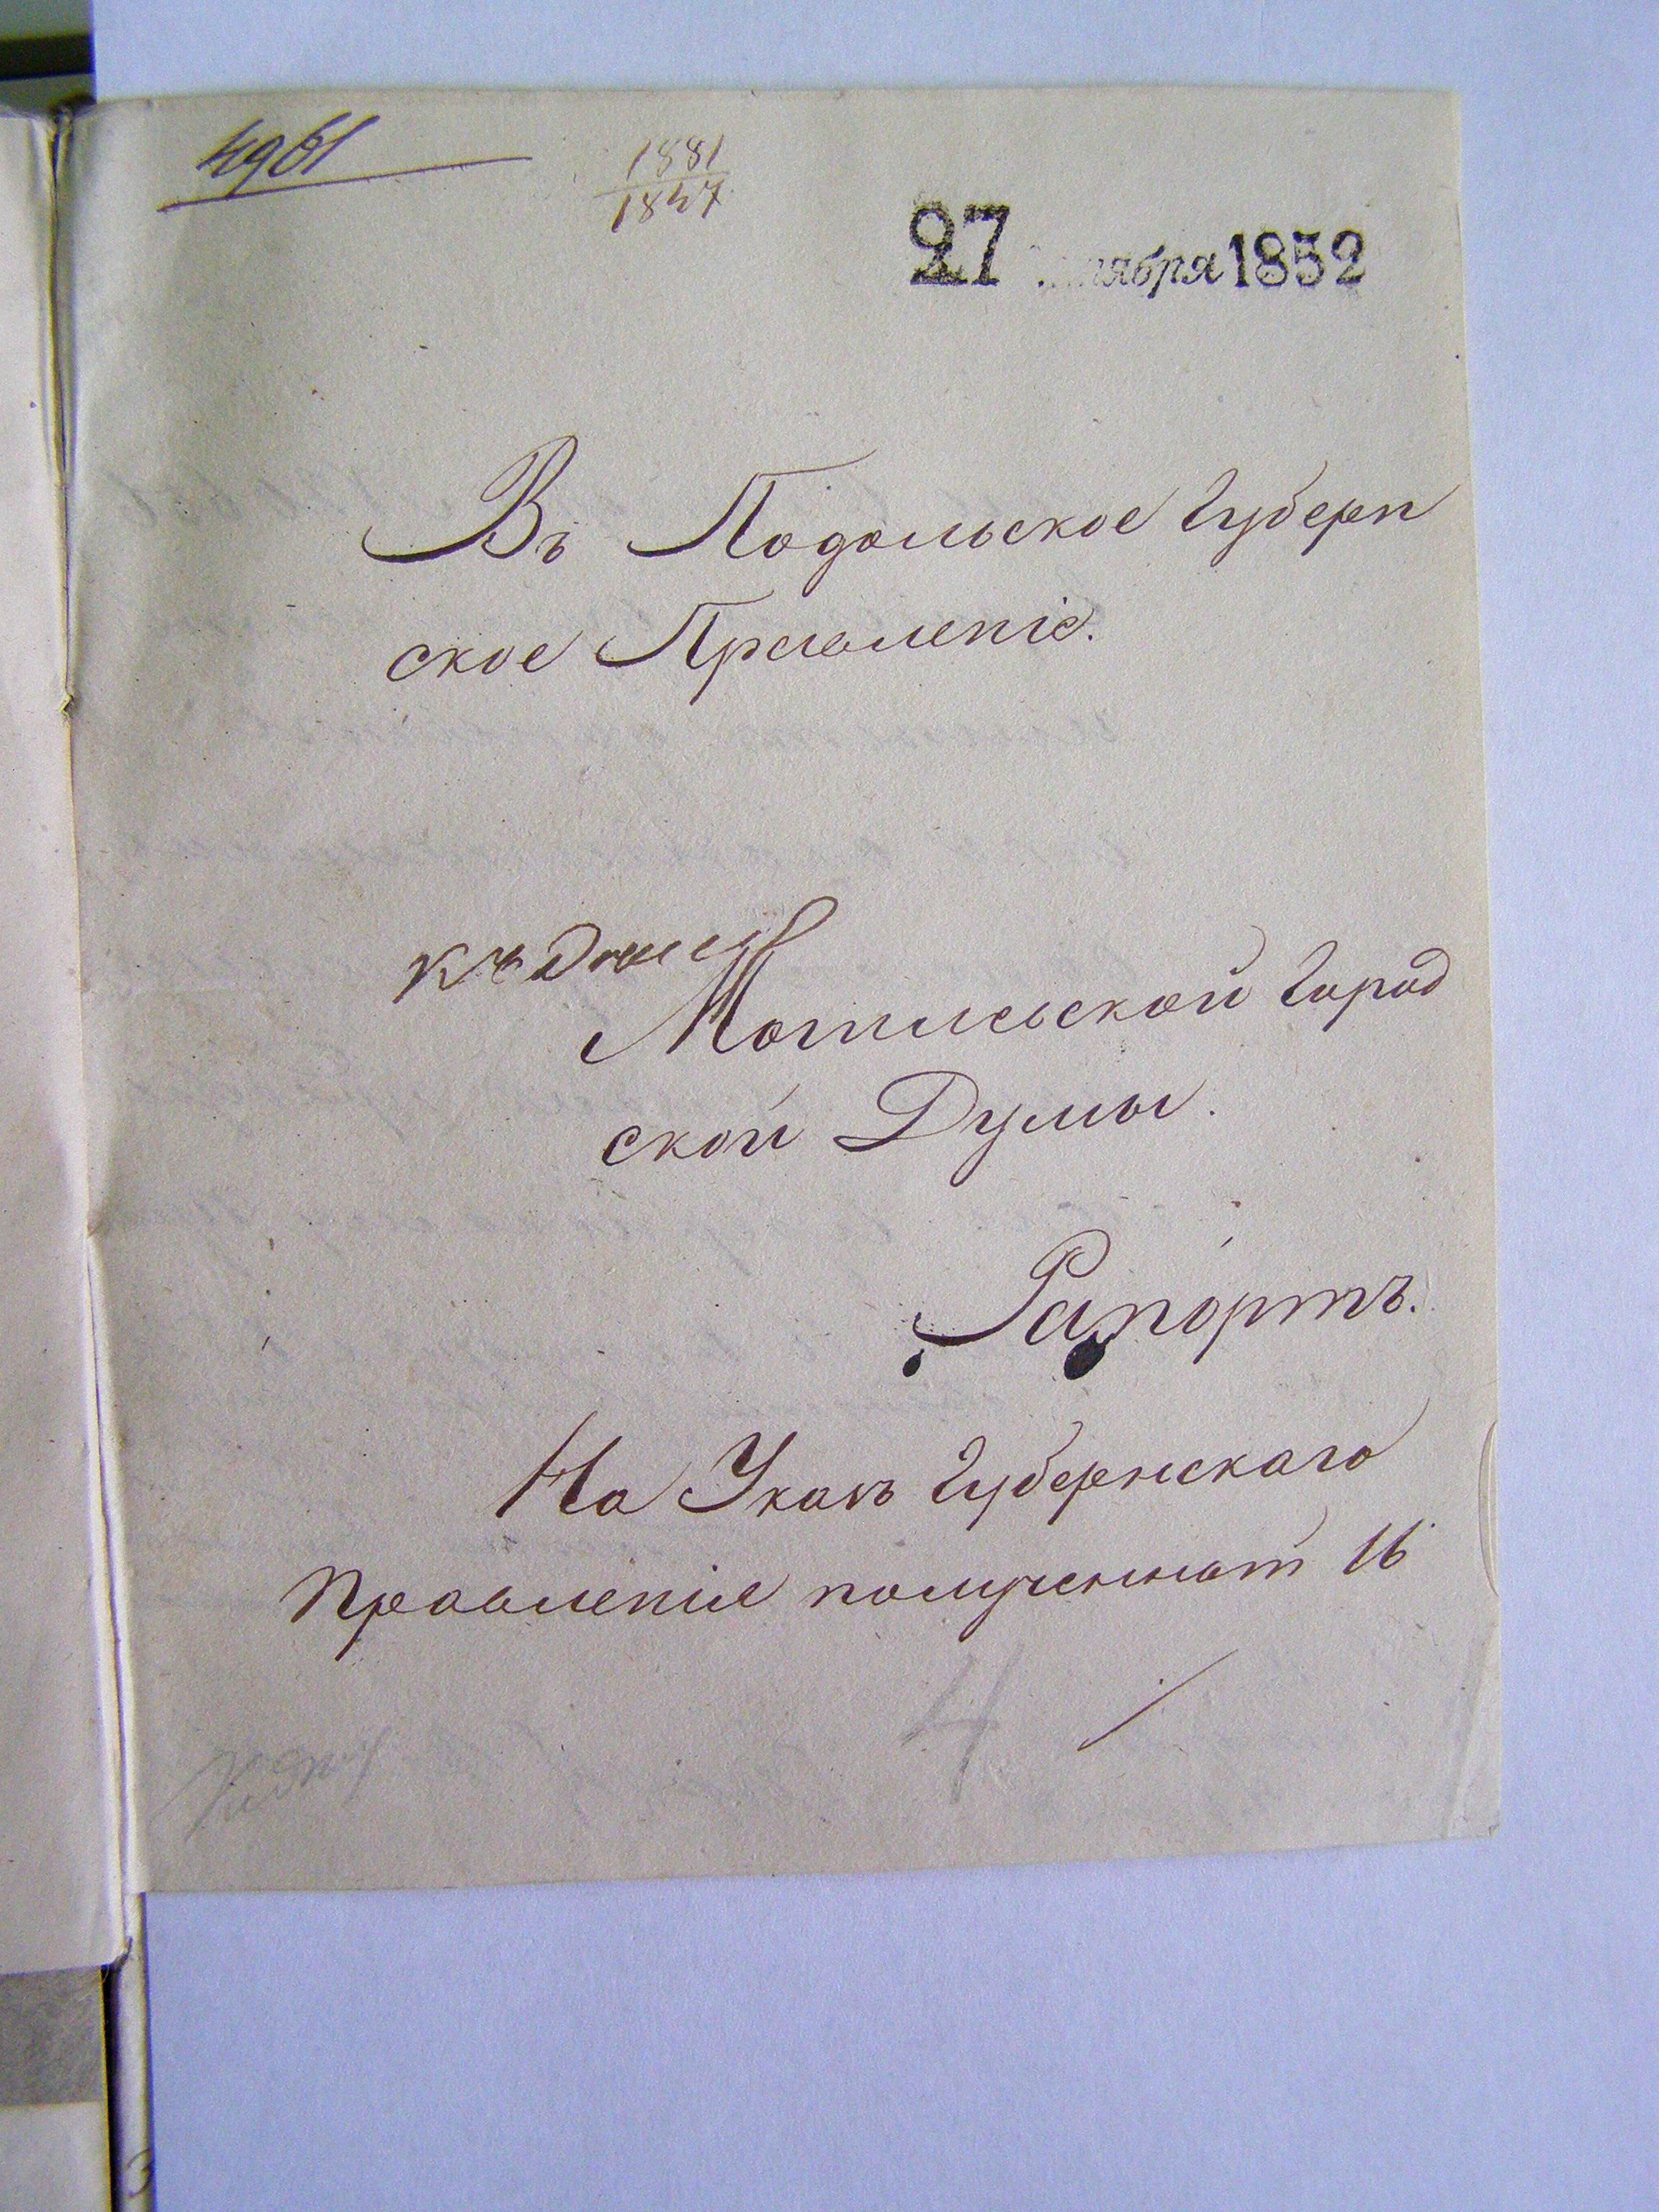 4961
1881
1847
27 тября 1852
Въ Подольское Губерн
ское Правленіе.
къ дѣлу
Могилевской Город
ской Думы.
Рапортъ.
На Указъ Губернскаго
Правленіе полученнаго 16
4